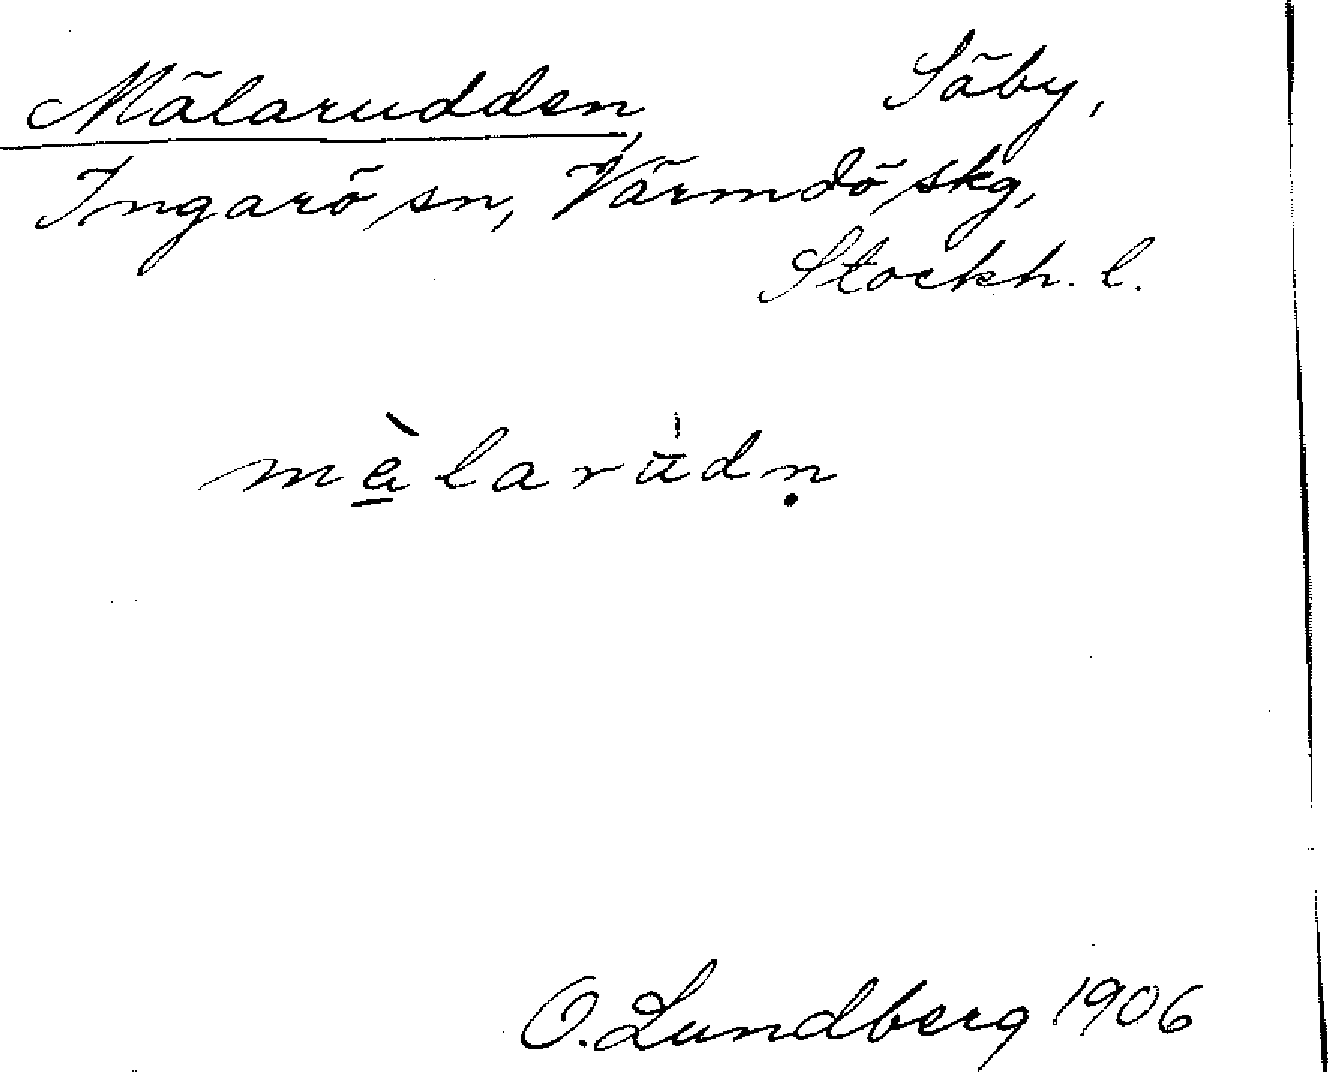 Mälarudden, Säby,
Ingarö sn, Värmdö skg,
Stockh. l.
mälarudn
O. Lundberg 1906